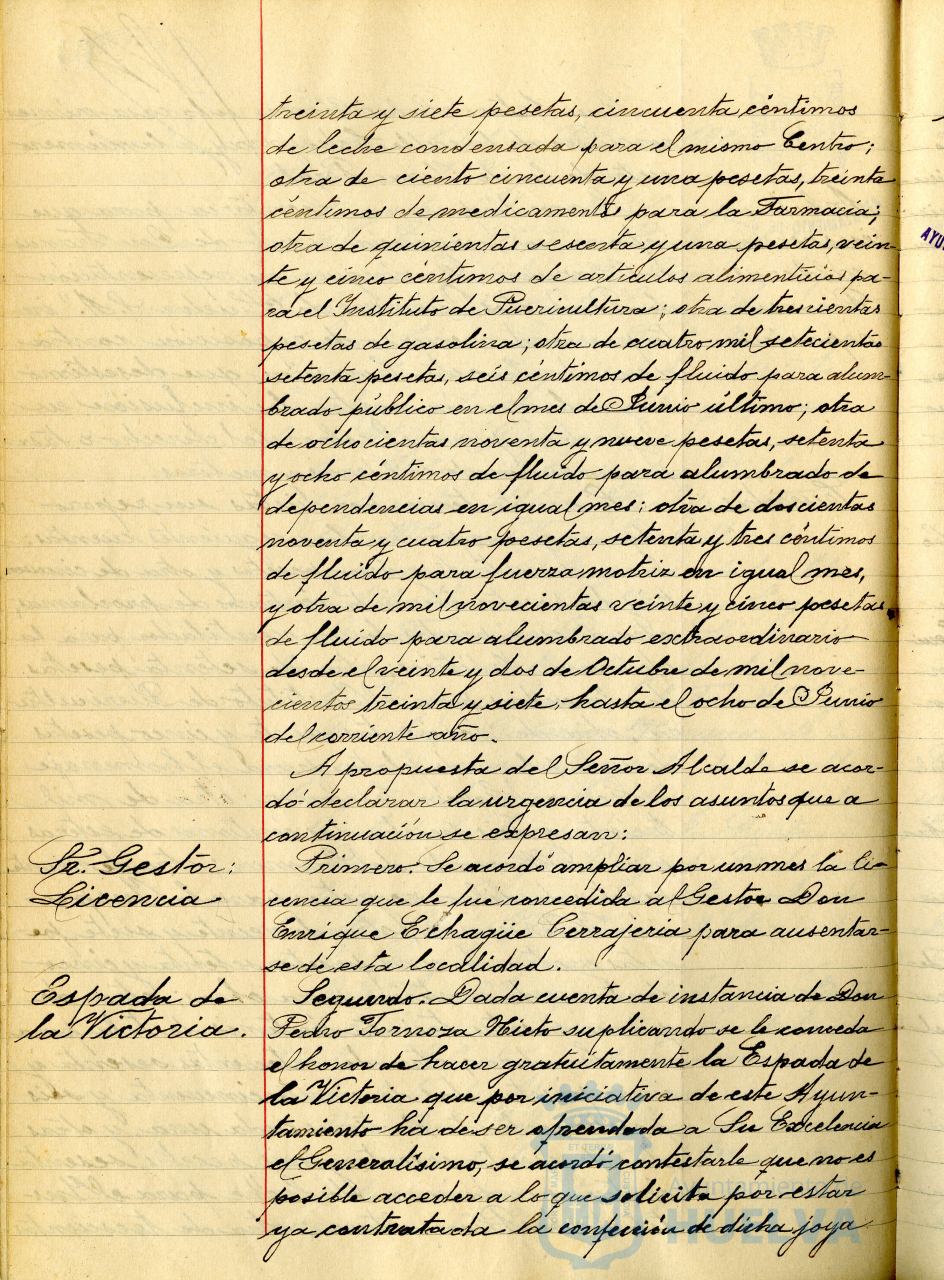 treinta y siete pesetas, cincuenta céntimos
de leche condensada para el mismo Centro;
otra de ciento cincuenta y una pesetas, treinta
céntimos de medicamentos para la Farmacia;
otra de quinientas sesenta y una pesetas, vein-
te y cinco céntimos de artículos alimenticios pa-
ra el Instituto de Puericultura; otra de trescientas
pesetas de gasolina; otra de cuatro mil setecientas
setenta pesetas, seis céntimos de fluido para alum-
brado público en el mes de Junio último; otra
de ochocientas noventa y nueve pesetas, setenta
y ocho céntimos de fluido para alumbrado de
dependencias en igual mes; otra de doscientas
noventa y cuatro pesetas, setenta y tres céntimos
de fluido para fuerza motriz en igual mes,
y otra de mil novecientas veinte y cinco pesetas
de fluido para alumbrado extraordinario
desde el veinte y dos de Octubre de mil nove-
cientos treinta y siete, hasta el ocho de Junio
del corriente año.
A propuesta del Señor Alcalde se acor-
dó declarar la urgencia de los asuntos que a
continuación se expresan:
Sr. Gestor:
Licencia
Primero. Se acordó ampliar por un mes la li-
cencia que le fué concedida al Gestor Don
Enrique Echagüe Cerrajeria para ausentar-
se de esta localidad.
Espada de
la Victoria.
Segundo. Dada cuenta de instancia de Don
Pedro Nieto suplicando se le conceda
el honor de hacer gratuitamente la Espada de
la Victoria que por iniciativa de este Ayun-
tamiento ha de ser ofrendada a Su Excelencia
el Generalísimo, se acordó contestarle que no es
posible acceder a lo que solicita por estar
ya contratada la confección de dicha joya
AYU
Ayuntamiento de
HUELVA